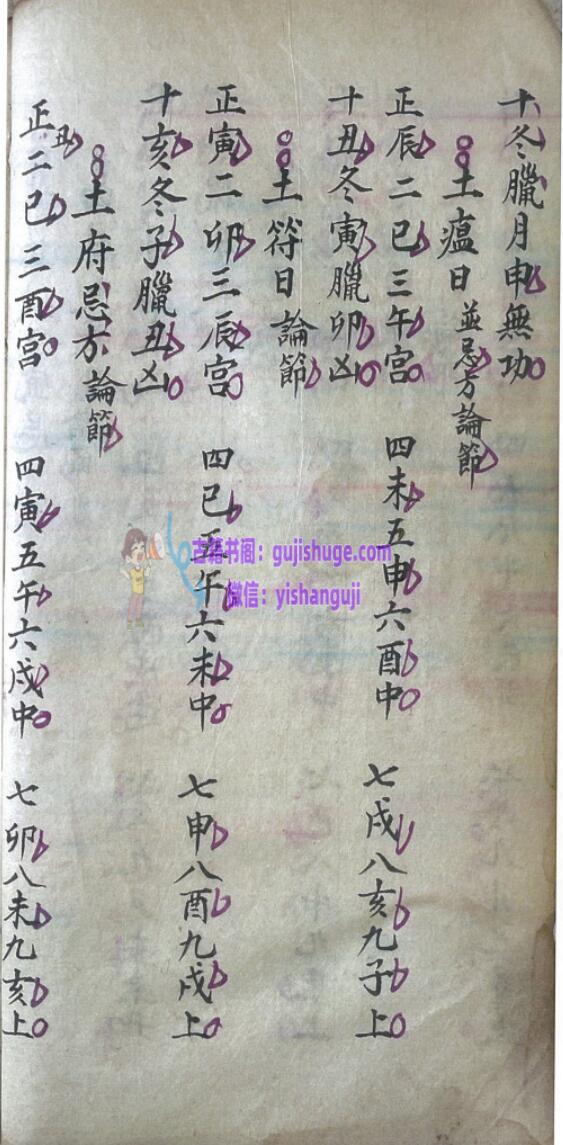 十冬臘月申無功
土瘟日並忌方論節
正辰二巳三午宮 四未五申六酉中 七戌八亥九子上
十丑冬寅臘卯凶
土符日論節
正寅二卯三辰宮 四巳五午六未中 七申八酉九戌上
十亥冬子臘丑凶
土府忌方論節
正丑二巳三酉宮 四寅五午六戌中 七卯八未九亥上
古籍书阁：gujishuge.com
微信：yishanguji